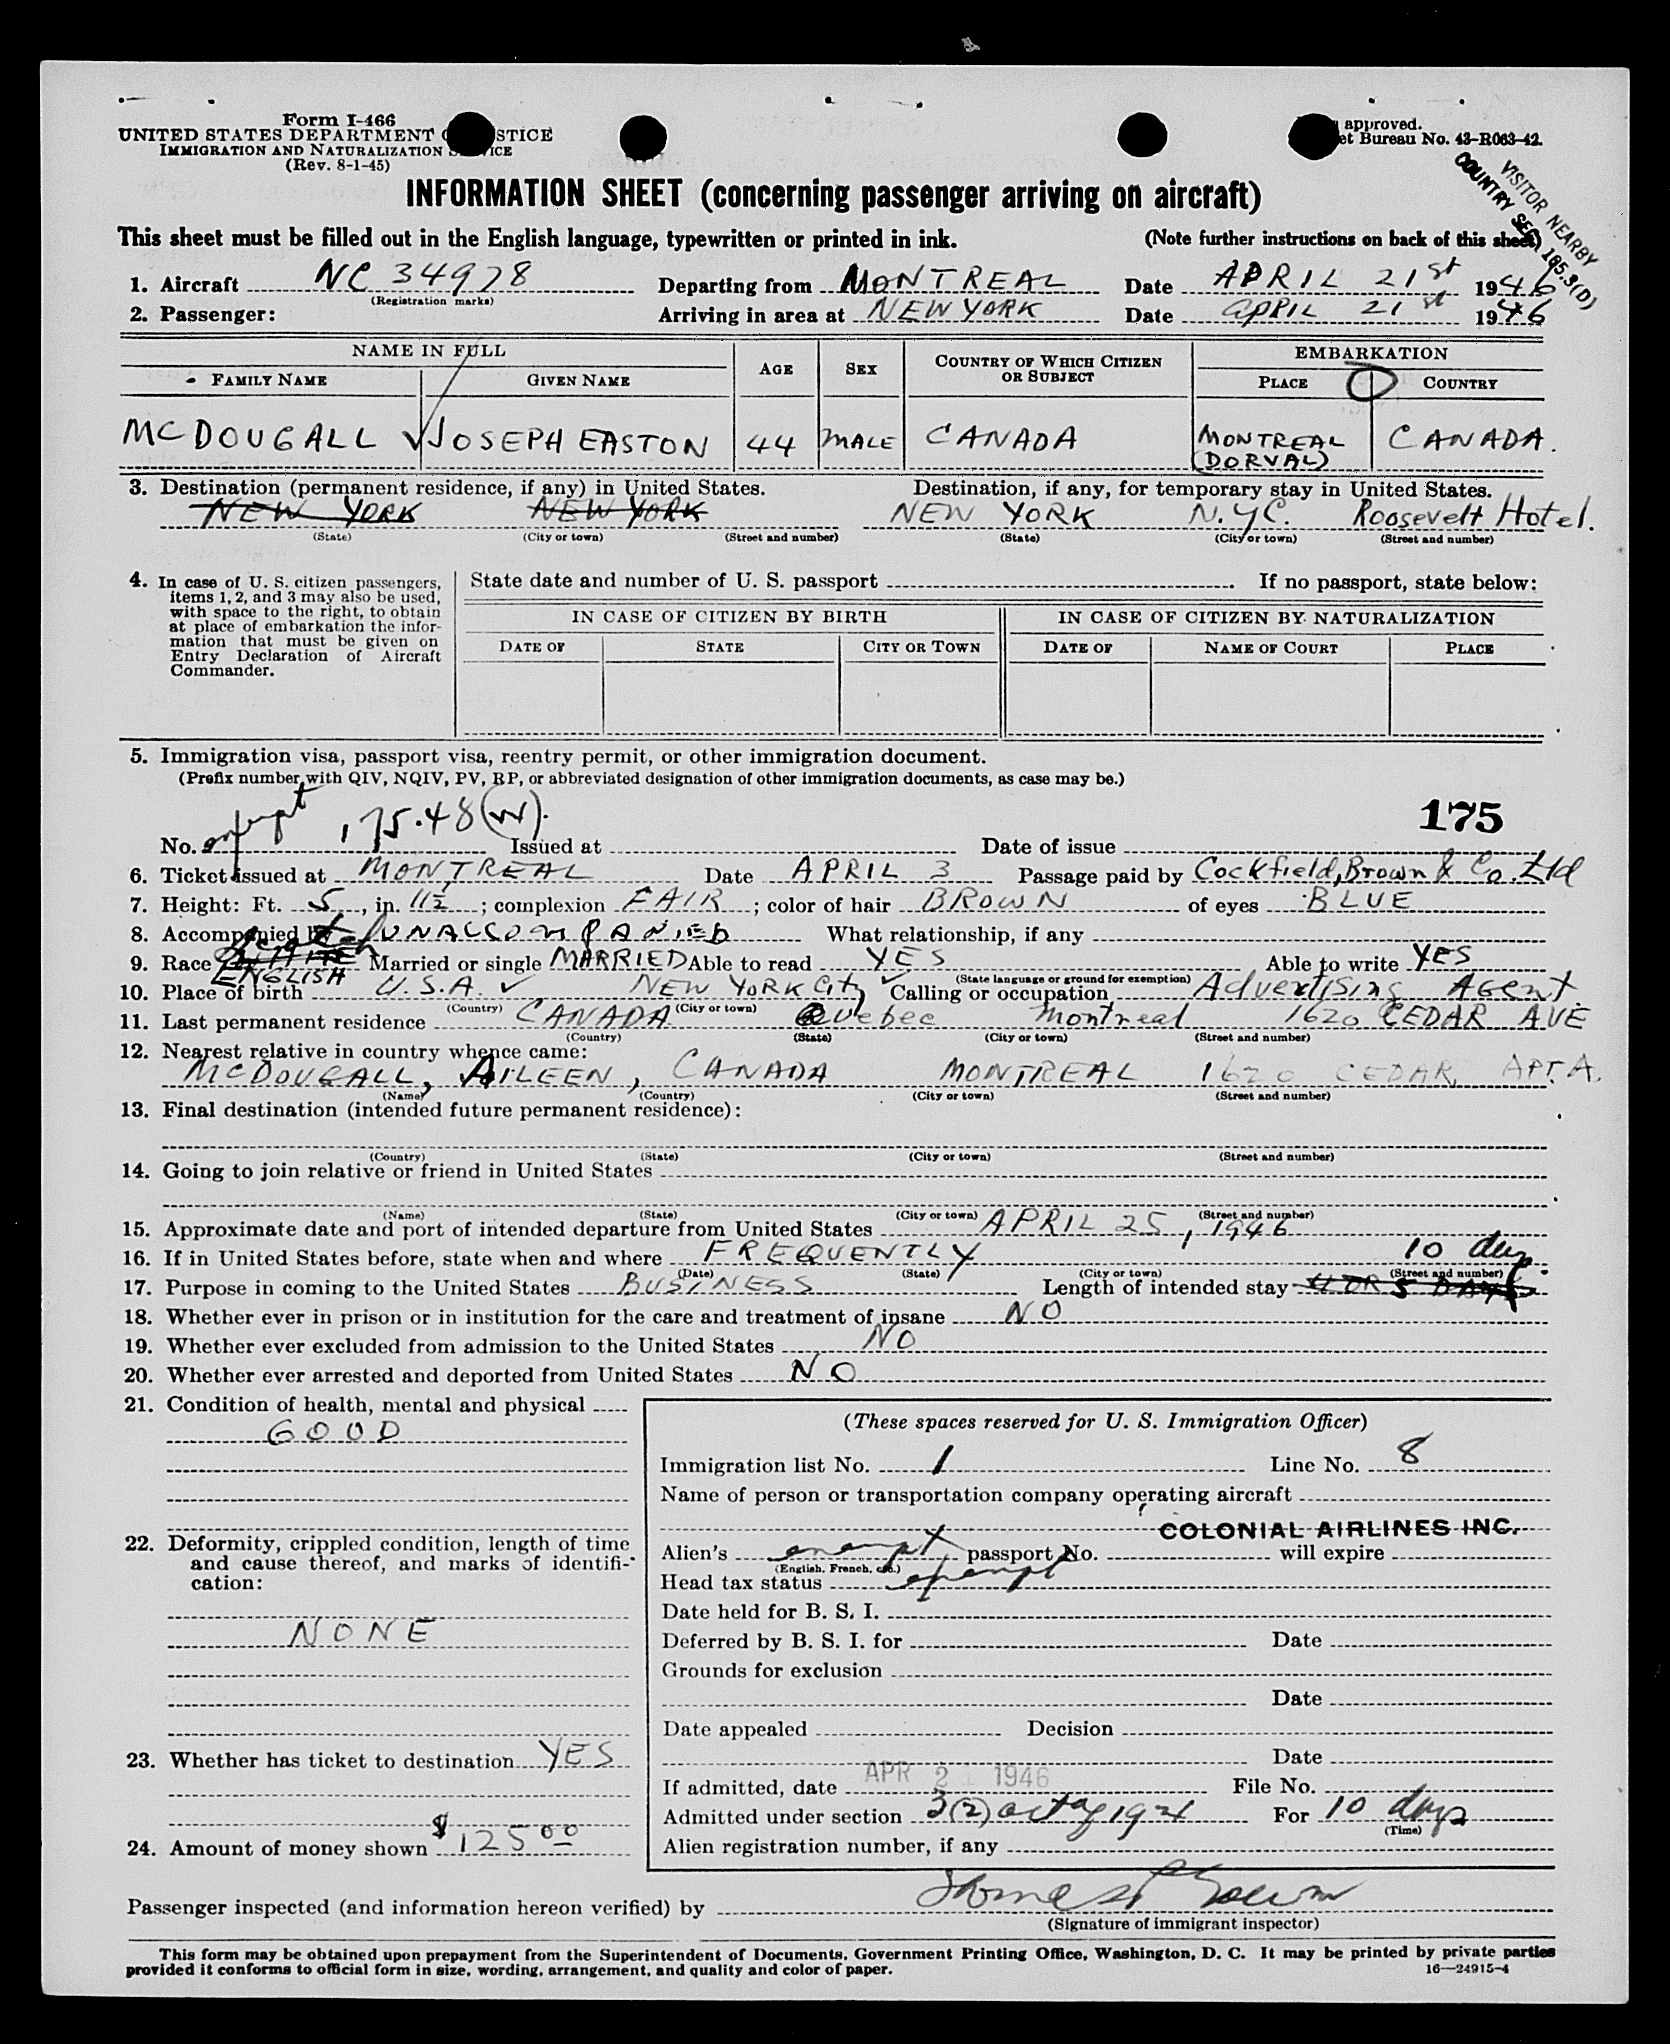 Form I-466
UNITED STATES DEPARTMENT STICE
IMMIGRATION AND NATURALIZATION ICE
(Rev. 8-1-45)
approved.
et Bureau No. 43-R063-42.
VISITOR NEARBY
COUNTRY SEC. 165.3(D)
INFORMATION SHEET (concerning passenger arriving on aircraft)
This sheet must be filled out in the English language, typewritten or printed in ink. (Note further instructions on back of this sheet)
1. Aircraft NC 34978 Departing from MONTREAL Date APRIL 21st 1946
(Registration marks)
2. Passenger: Arriving in area at NEW YORK Date APRIL 21st 1946
NAME IN FULL AGE SEX COUNTRY OF WHICH CITIZEN OR SUBJECT EMBARKATION
FAMILY NAME GIVEN NAME PLACE COUNTRY
MCDOUGALL JOSEPH EASTON 44 MALE CANADA MONTREAL (DORVAL) CANADA.
3. Destination (permanent residence, if any) in United States. Destination, if any, for temporary stay in United States.
NEW YORK NEW YORK NEW YORK N.Y.C. Roosevelt Hotel.
(State) (City or town) (Street and number) (State) (City or town) (Street and number)
4. In case of U. S. citizen passengers, items 1, 2, and 3 may also be used, with space to the right, to obtain at place of embarkation the information that must be given on Entry Declaration of Aircraft Commander.
State date and number of U. S. passport If no passport, state below:
IN CASE OF CITIZEN BY BIRTH IN CASE OF CITIZEN BY NATURALIZATION
DATE OF STATE CITY OR TOWN DATE OF NAME OF COURT PLACE
5. Immigration visa, passport visa, reentry permit, or other immigration document.
(Prefix number with QIV, NQIV, PV, RP, or abbreviated designation of other immigration documents, as case may be.)
175
No. exempt 175.48(W). Issued at Date of issue
6. Ticket issued at MONTREAL Date APRIL 3 Passage paid by Cockfield, Brown & Co. Ltd
7. Height: Ft. 5, in. 11½; complexion FAIR; color of hair BROWN of eyes BLUE
8. Accompanied by UNACCOMPANIED What relationship, if any
9. Race Scotch WHITE ENGLISH Married or single MARRIED Able to read YES Able to write YES
(State language or ground for exemption)
10. Place of birth U.S.A. NEW YORK City Calling or occupation Advertising Agent.
(Country) (City or town)
11. Last permanent residence CANADA Quebec Montreal 1620 CEDAR AVE
(Country) (State) (City or town) (Street and number)
12. Nearest relative in country whence came:
MCDOUGALL, AILEEN, CANADA MONTREAL 1620 CEDAR, APT. A.
(Name) (Country) (City or town) (Street and number)
13. Final destination (intended future permanent residence):
(Country) (State) (City or town) (Street and number)
14. Going to join relative or friend in United States
(Name) (State) (City or town) (Street and number)
15. Approximate date and port of intended departure from United States APRIL 25, 1946
16. If in United States before, state when and where FREQUENTLY
(Date) (State) (City or town) (Street and number)
17. Purpose in coming to the United States BUSINESS Length of intended stay 4 OR 5 DAYS 10 days
18. Whether ever in prison or in institution for the care and treatment of insane NO
19. Whether ever excluded from admission to the United States NO
20. Whether ever arrested and deported from United States NO
21. Condition of health, mental and physical
GOOD
22. Deformity, crippled condition, length of time and cause thereof, and marks of identification:
NONE
23. Whether has ticket to destination YES
24. Amount of money shown $125 00
(These spaces reserved for U. S. Immigration Officer)
Immigration list No. 1 Line No. 8
Name of person or transportation company operating aircraft
COLONIAL AIRLINES INC.
Alien's exempt passport No. will expire
(English, French, etc.)
Head tax status exempt
Date held for B. S. I.
Deferred by B. S. I. for Date
Grounds for exclusion
Date
Date appealed Decision
Date
If admitted, date APR 21 1946 File No.
Admitted under section 3(2) act of 1924 For 10 days
(Time)
Alien registration number, if any
Passenger inspected (and information hereon verified) by
(Signature of immigrant inspector)
This form may be obtained upon prepayment from the Superintendent of Documents, Government Printing Office, Washington, D. C. It may be printed by private parties
provided it conforms to official form in size, wording, arrangement, and quality and color of paper. 16—24915-4